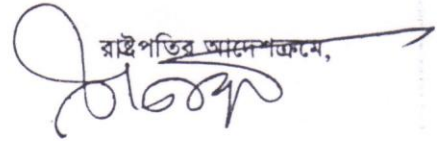 রাষ্ট্রপতির আদেশক্রমে,